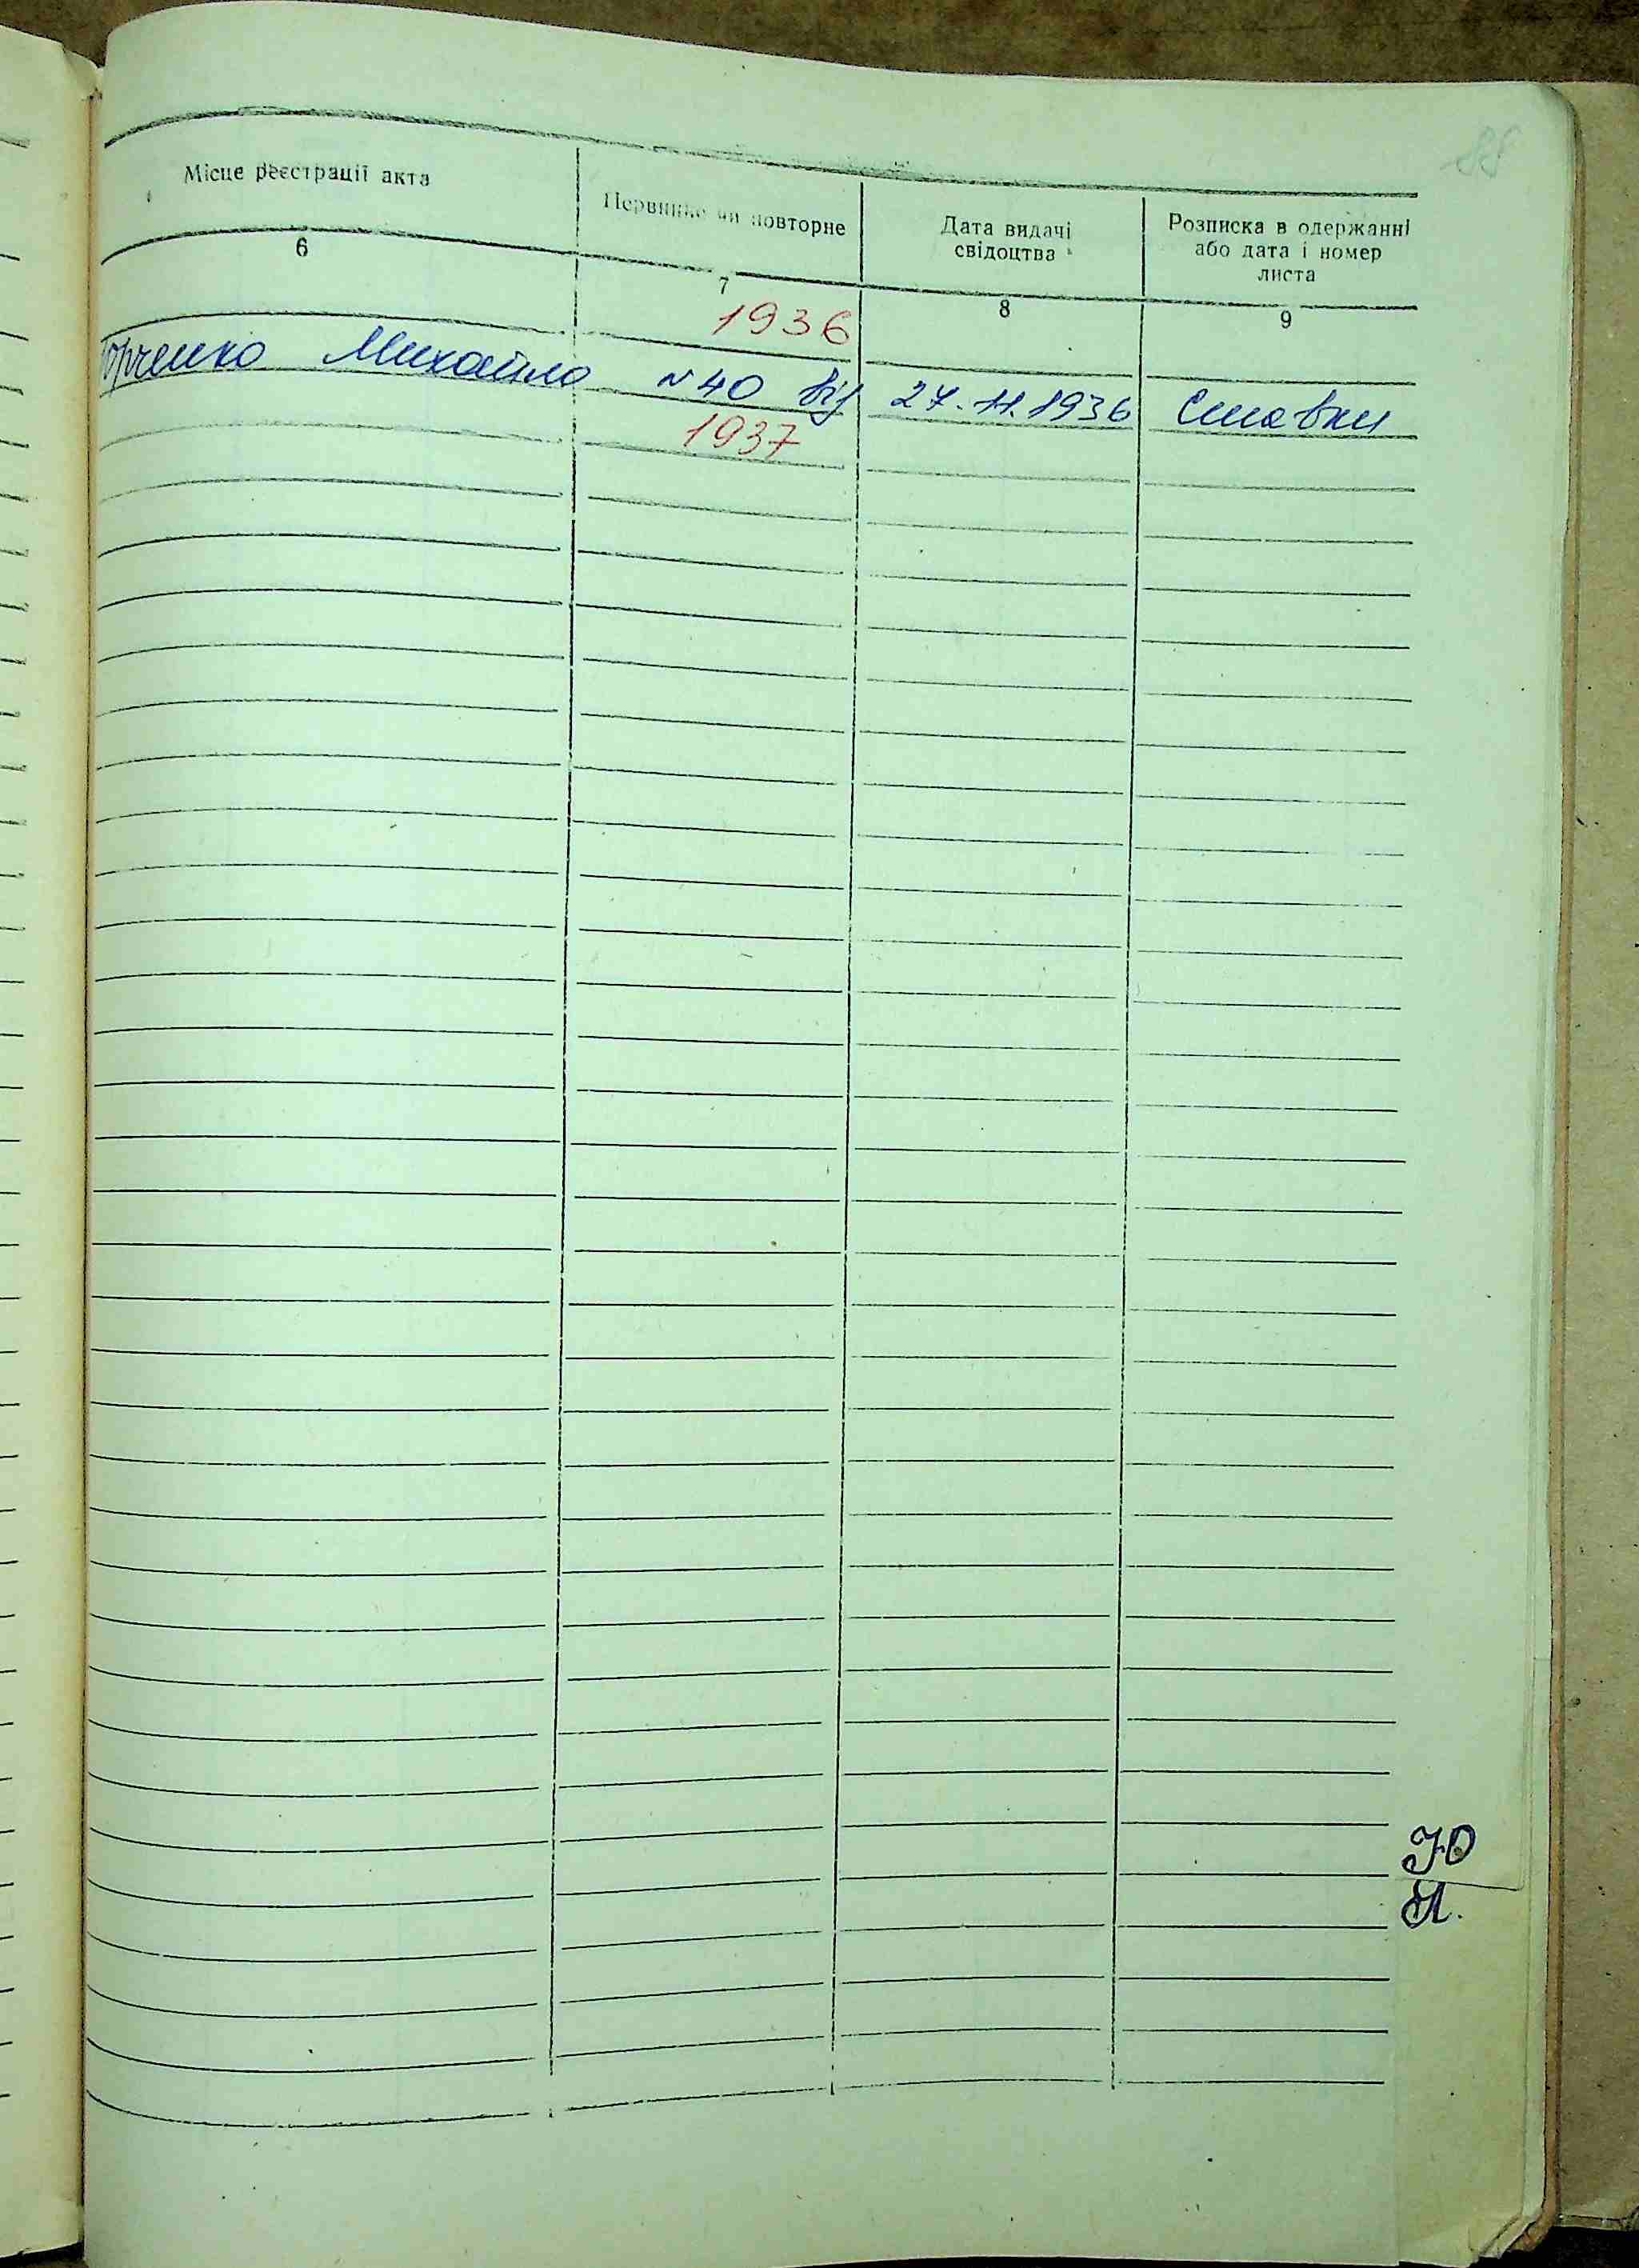 Місце реєстрації акта
Первинне чи повторне
Дата видачі
свідоцтва
Розписка в одержанні
або дата і номер
листа
6
7
8
9
1936
Михайло № 40 від 27.11.1936 Ставки
1937
Ю
Я.